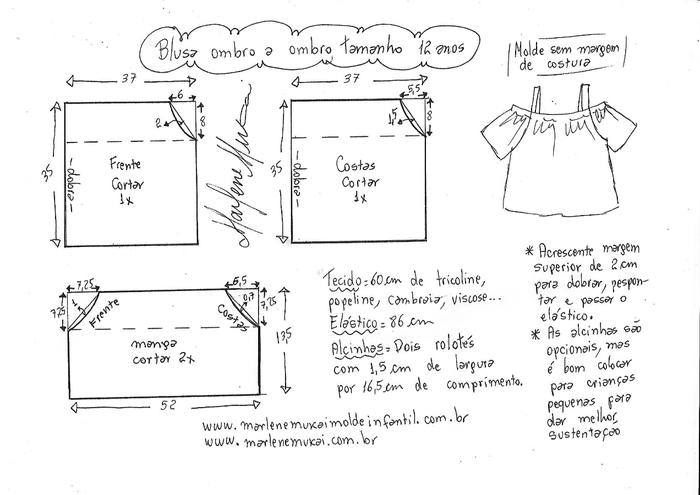 Blusa ombro a ombro tamanho 12 anos
Molde sem margem
de costura
37
6
2
8
35
dobra
Frente
Cortar
1x
Marlene Mukai
37
5,5
1,5
8
35
dobra
Costas
Cortar
1x
7,25
7,25
1
Frente
6,5
0,7
7,25
Costas
13,5
manga
cortar 2x
52
Tecido=60cm de tricoline,
popeline, cambraia, viscose...
Elástico=86cm
Alcinhas=Dois rolotês
com 1,5cm de largura
por 16,5cm de comprimento.
* Acrescente margem
superior de 2cm
para dobrar, pespon-
tar e passar o
elástico.
* As alcinhas são
opcionais, mas
é bom colocar
para crianças
pequenas para
dar melhor
sustentação
www.marlenemukaimoldeinfantil.com.br
www.marlenemukai.com.br